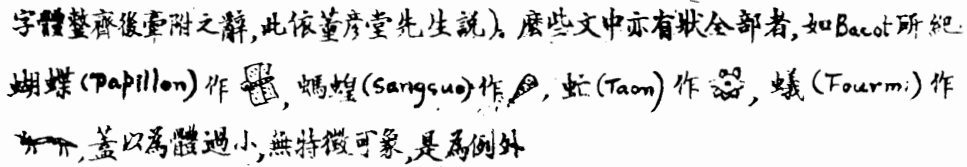 字體整齊後臺附之辭,此依董彦堂先生説)。麽些文中亦有狀全部者,如Bacot所紀
蝴蝶(Papillon)作 ,螞蝗(Sangsue)作 ,虻(Taon)作 ,蟻(Fourmi)作
,蓋以為體過小,無特徵可象,是為例外